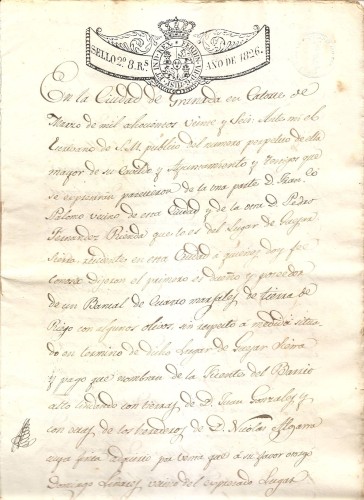 SELLO 2º 8. Rs AÑO DE 1826.
En la Ciudad de Granada en Catorce de
Marzo de mil ochocientos veinte y Seis: Ante mi el
Escribano de S.M. publico del numero perpetuo de ella
mayor de su Cavildo y Ayuntamiento y testigos que
se expresarán parecieron de la una parte D. Fran.co
Palomo vecino de esta Ciudad y de la otra D. Pedro
Fernandez que lo es del Lugar de Guejar
Sierra, residente en esta Ciudad á quienes doy fee
conozco dijeron el primero es dueño y poseedor
de un Bancal de Cuatro marjales de tierra de
Riego con algunos olivos, sin respeto á medida situa-
do en termino de dicho Lugar de Guejar Sierra
y pago que nombran de la Fuente del Barrio
alto lindando con tierras de D. Juan Gonzalez y
con otras de los herederos de D. Nicolas
cuya finca adquirio por venta que á su favor otorgo
Domingo Linares vecino del expresado Lugar